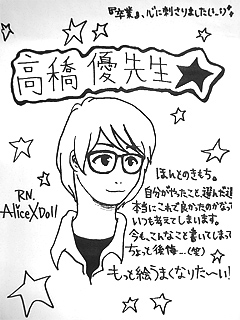 『卒業』、心に刺さりました(しー)。
高橋 優先生★
R.N.
Alice×Doll
ほんとのきもち。
自分がやったこと、選んだ道
本当にこれで良かったのかなって
いつも考えてしまいます。
今も、こんなこと書いてしまって
ちょっと後悔…(笑)
もっと絵うまくなりた〜い!